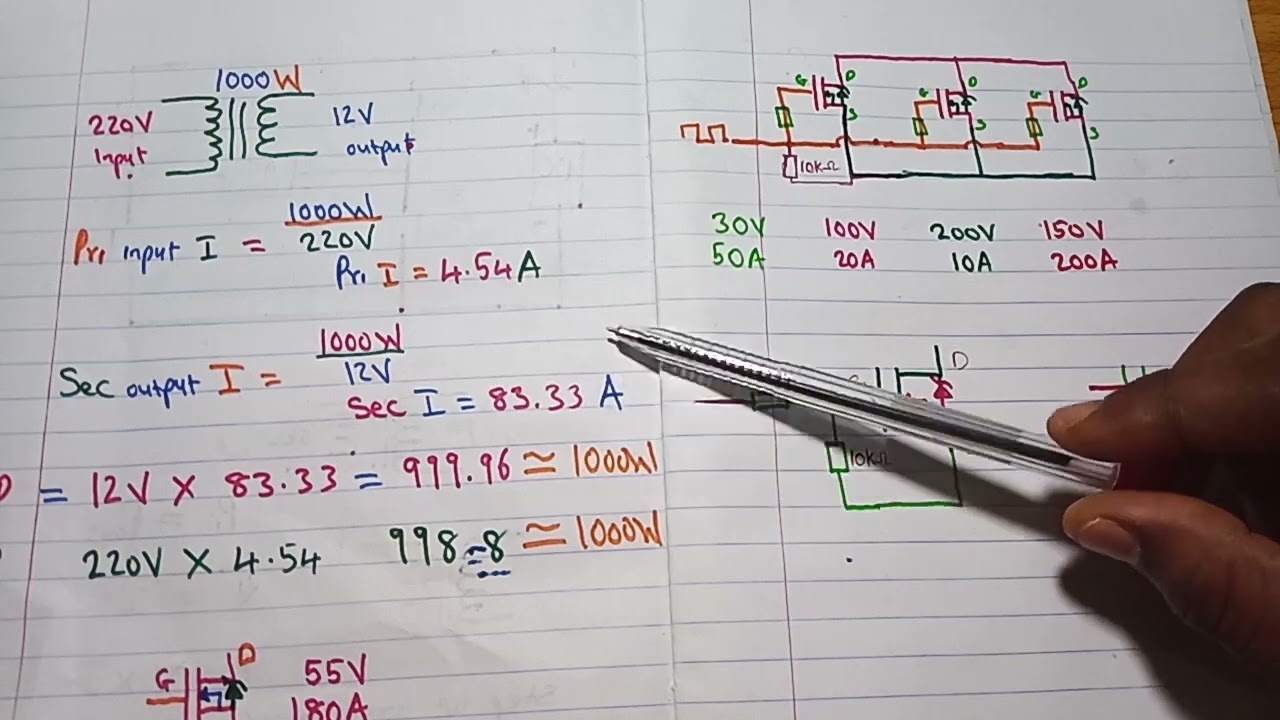 1000W
220V
Input
12V
output
Pri input I = 1000W
220V
Pri I = 4.54A
Sec output I = 1000W
12V
Sec I = 83.33 A
= 12V X 83.33 = 999.96 ≃ 1000W
220V X 4.54 998.8 ≃ 1000W
G D 55V
180A
G D S G D S G D S
10KΩ
30V 100V 200V 150V
50A 20A 10A 200A
D
10KΩ